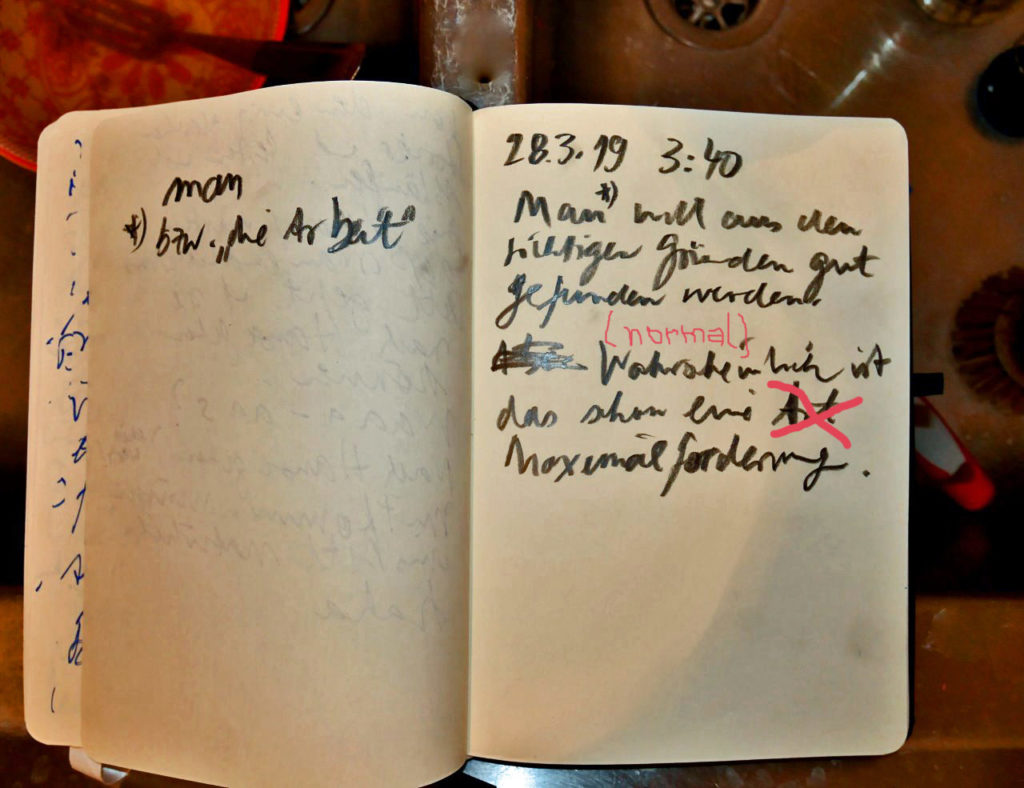 man
*) bzw. „die Arbeit“
28.3.19 3:40
Man*) will aus den
richtigen Gründen gut
gefunden werden.
(normal)
Wahrscheinlich ist
das schon eine Art
Maximalforderung.